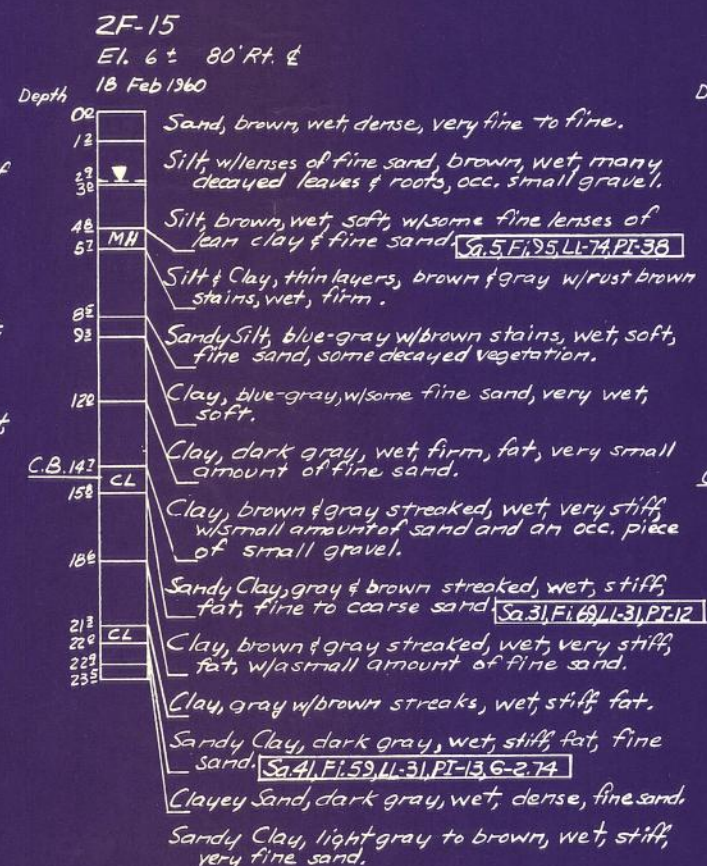 2F-15
El. 6± 80' Rt. ℄
18 Feb 1960
Depth
Sand, brown, wet, dense, very fine to fine.
Silt, w/lenses of fine sand, brown, wet, many
decayed leaves & roots, occ. small gravel.
Silt, brown, wet, soft, w/some fine lenses of
lean clay & fine sand. Sa.5, Fi.95, LL-74, PI-38
Silt & Clay, thin layers, brown & gray w/rust brown
stains, wet, firm.
Sandy Silt, blue-gray w/brown stains, wet, soft,
fine sand, some decayed vegetation.
Clay, blue-gray, w/some fine sand, very wet,
soft.
Clay, dark gray, wet, firm, fat, very small
amount of fine sand.
Clay, brown & gray streaked, wet, very stiff,
w/small amount of sand and an occ. piece
of small gravel.
Sandy Clay, gray & brown streaked, wet, stiff,
fat, fine to coarse sand. Sa.31, Fi.69, LL-31, PI-12
Clay, brown & gray streaked, wet, very stiff,
fat, w/a small amount of fine sand.
Clay, gray w/brown streaks, wet, stiff, fat.
Sandy Clay, dark gray, wet, stiff, fat, fine
sand. Sa.41, Fi.59, LL-31, PI-13, G-2.74
Clayey Sand, dark gray, wet, dense, fine sand.
Sandy Clay, light gray to brown, wet, stiff,
very fine sand.
MH
C.B. 14
CL
CL